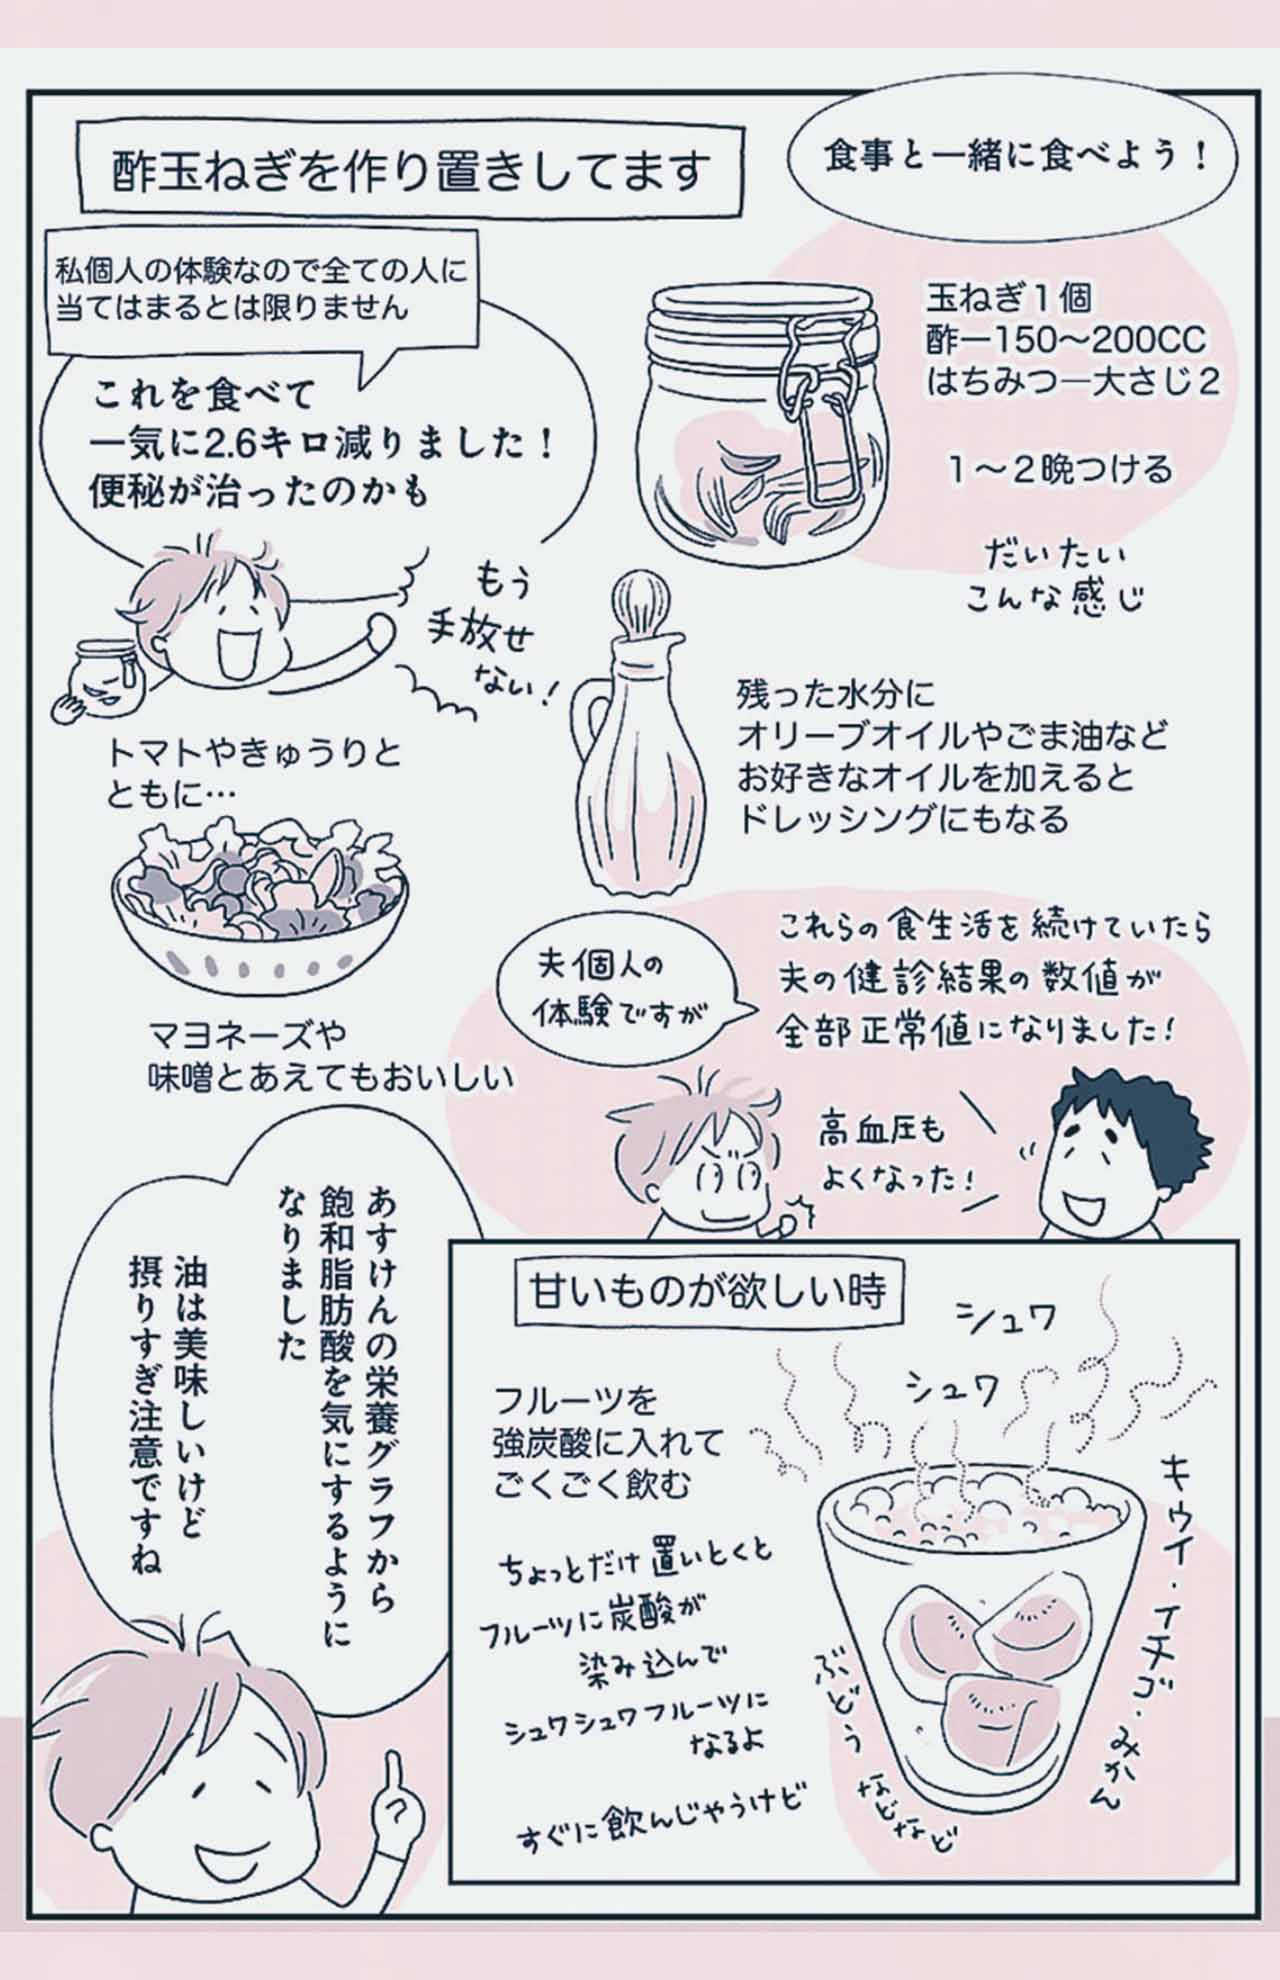 酢玉ねぎを作り置きしてます
食事と一緒に食べよう！
私個人の体験なので全ての人に
当てはまるとは限りません
これを食べて
一気に2.6キロ減りました！
便秘が治ったのかも
もう
手放せ
ない！
玉ねぎ１個
酢ー150〜200CC
はちみつ―大さじ２
１〜２晩つける
だいたい
こんな感じ
残った水分に
オリーブオイルやごま油など
お好きなオイルを加えると
ドレッシングにもなる
トマトやきゅうりと
ともに…
マヨネーズや
味噌とあえてもおいしい
夫個人の
体験ですが
これらの食生活を続けていたら
夫の健診結果の数値が
全部正常値になりました！
高血圧も
よくなった！
あすけんの栄養グラフから
飽和脂肪酸を気にするように
なりました
油は美味しいけど
摂りすぎ注意ですね
甘いものが欲しい時
シュワ
シュワ
フルーツを
強炭酸に入れて
ごくごく飲む
ちょっとだけ置いとくと
フルーツに炭酸が
染み込んで
シュワシュワフルーツに
なるよ
すぐに飲んじゃうけど
キウイ・イチゴ・みかん
ぶどう
などなど